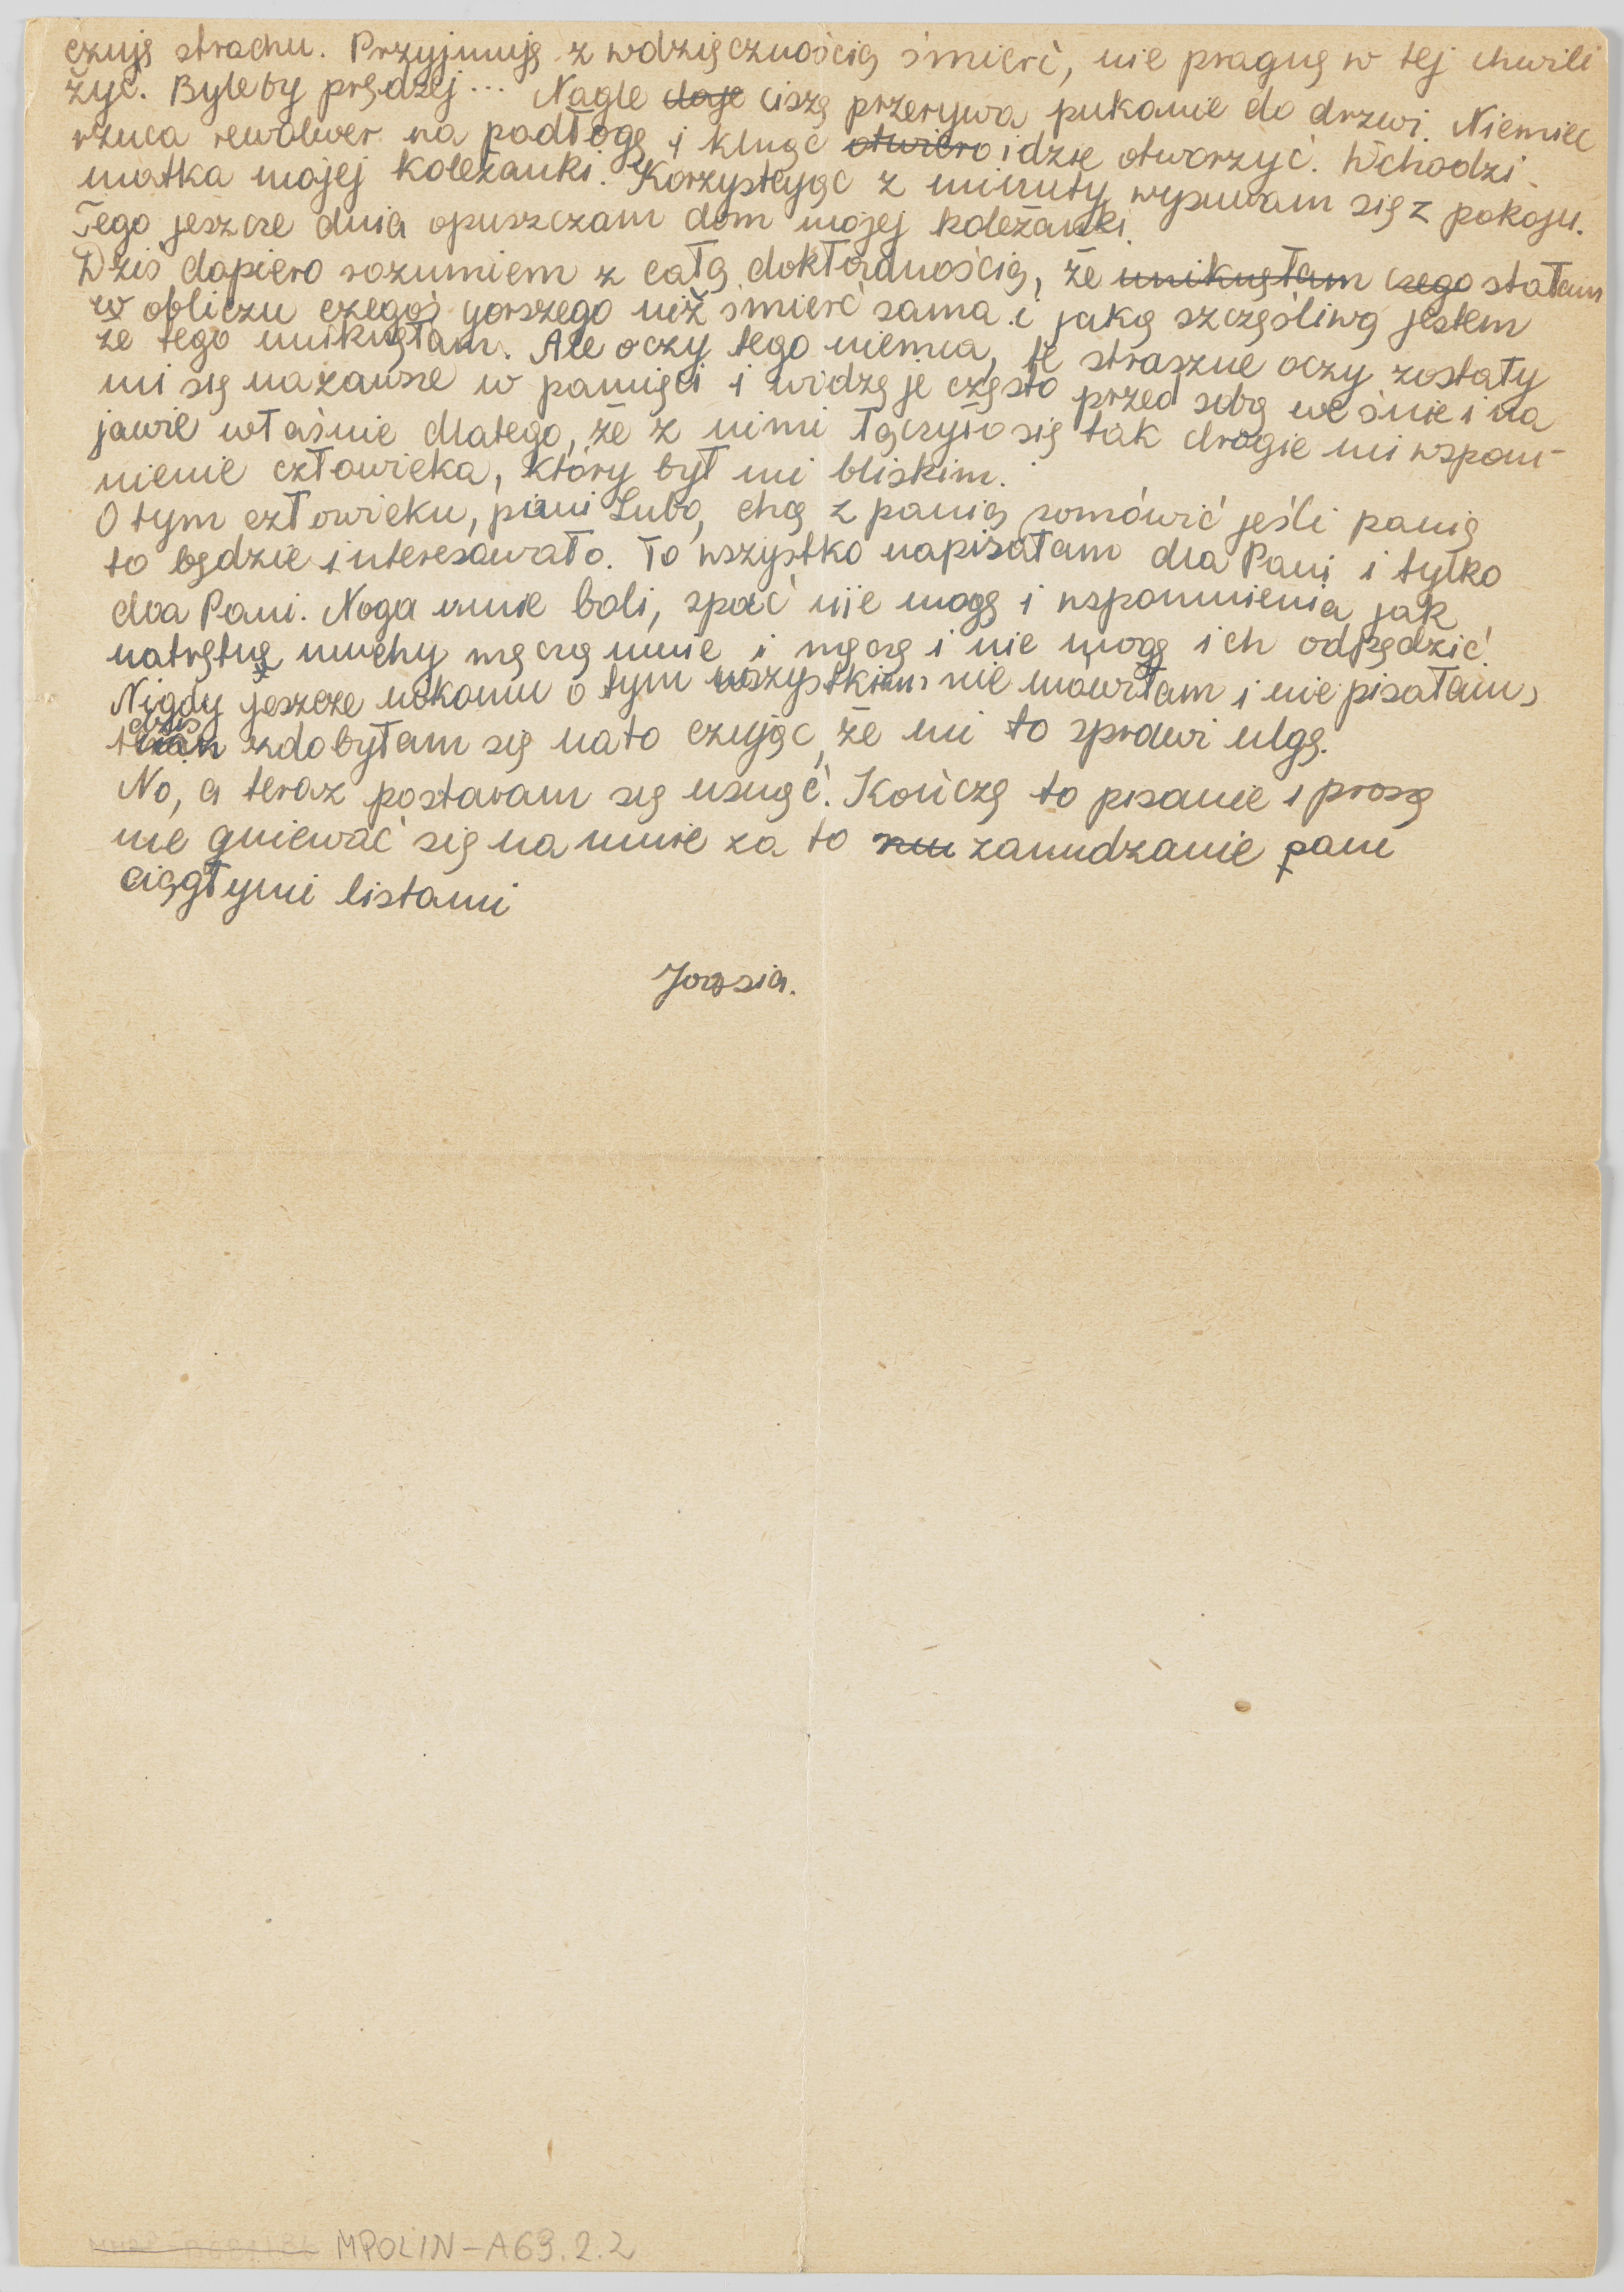 czuję strachu. Przyjmuję z wdzięcznością śmierć, nie pragnę w tej chwili
żyć. Byleby prędzej... Nagle ciszę przerywa pukanie do drzwi. Niemiec
rzuca rewolwer na podłogę i klnąc otwiera idzie otworzyć. Wchodzi
matka mojej koleżanki. Korzystając z minuty wysuwam się z pokoju.
Tego jeszcze dnia opuszczam dom mojej koleżanki.
Dziś dopiero rozumiem z całą dokładnością, że uniknęłam czego stałam
w obliczu czegoś gorszego niż śmierć sama i jaką szczęśliwą jestem
że tego uniknęłam. Ale oczy tego niemca, te straszne oczy zostały
mi się nazawsze w pamięci i widzę je często przed sobą we śnie i na
jawie właśnie dlatego, że z nimi łączyło się tak drogie mi wspom-
nienie człowieka, który był mi bliskim.
O tym człowieku, pani Lubo, chcę z panią pomówić jeśli panią
to będzie interesowało. To wszystko napisałam dla Pani i tylko
dla Pani. Noga mnie boli, spać nie mogę i wspomnienia jak
natrętne muchy męczą mnie i męczą i nie mogę ich odpędzić.
Nigdy jeszcze nikomu o tym wszystkim nie mówiłam i nie pisałam,
dziś zdobyłam się na to czując, że mi to sprawi ulgę.
No, a teraz postaram się usnąć. Kończę to pisanie i proszę
nie gniewać się na mnie za to zanudzanie pani
ciągłymi listami
Joasia.
MPOLIN-A69.2.2